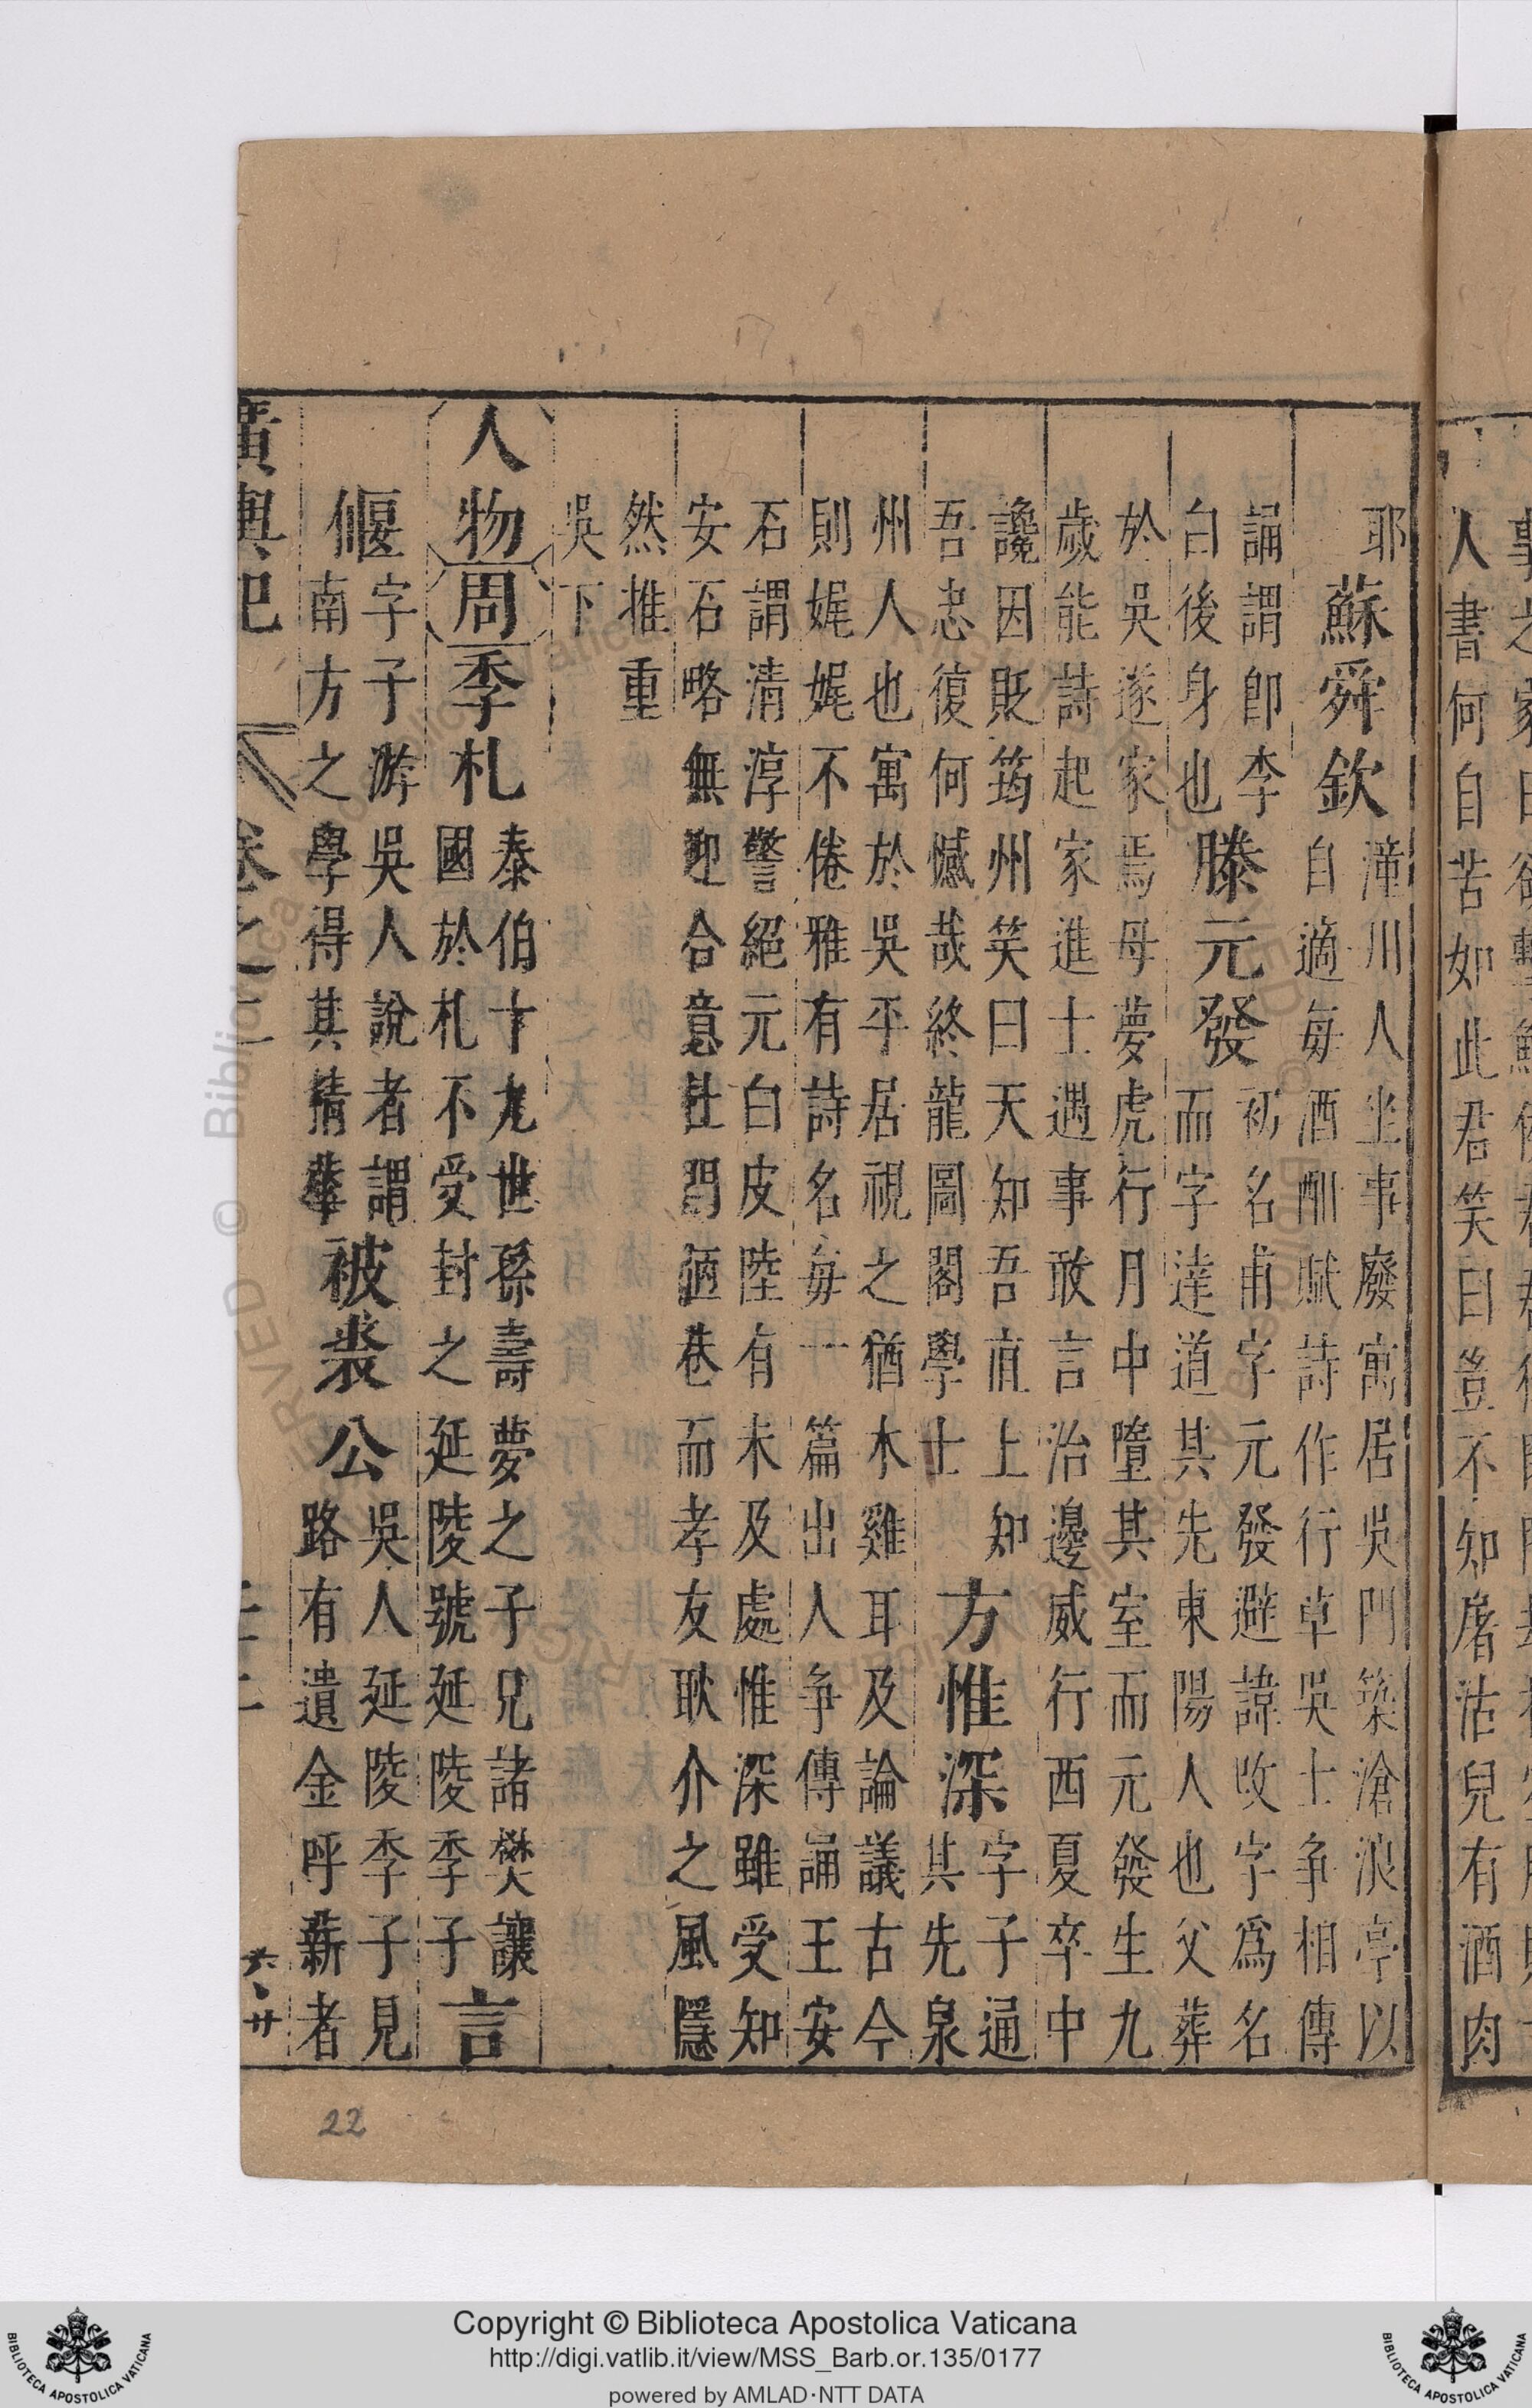 人書何自苦如此君笑曰豈不知屠沽兒有酒肉
耶
蘇舜欽
潼川人坐事廢寓居吳門築滄浪亭以
自適每酒酣賦詩作行草吳士争相傳
誦謂卽李
白後身也
滕元發
初名甫字元發避諱攺字爲名
而字達道其先東陽人也父葬
於吳遂家焉母夢虎行月中墮其室而元發生九
歲能詩起家進士遇事敢言治邊威行西夏卒中
讒因貶筠州笑曰天知吾直上知
吾忠復何憾哉終龍圖閣學士
方惟深
字子通
其先泉
州人也寓於吳平居視之猶木雞耳及論議古今
則娓娓不倦雅有詩名每一篇出人争傳誦王安
石謂清淳警絕元白皮陸有未及處惟深雖受知
安石略無迎合意杜門陋巷而孝友耿介之風隱
然推重
吳下
人物
周
季札
泰伯十九世孫壽夢之子兄諸樊讓
國於札不受封之延陵號延陵季子
言
偃
字子游吳人說者謂
南方之學得其精華
被裘公
吳人延陵季子見
路有遺金呼薪者
22
Copyright © Biblioteca Apostolica Vaticana
http://digi.vatlib.it/view/MSS_Barb.or.135/0177
powered by AMLAD·NTT DATA